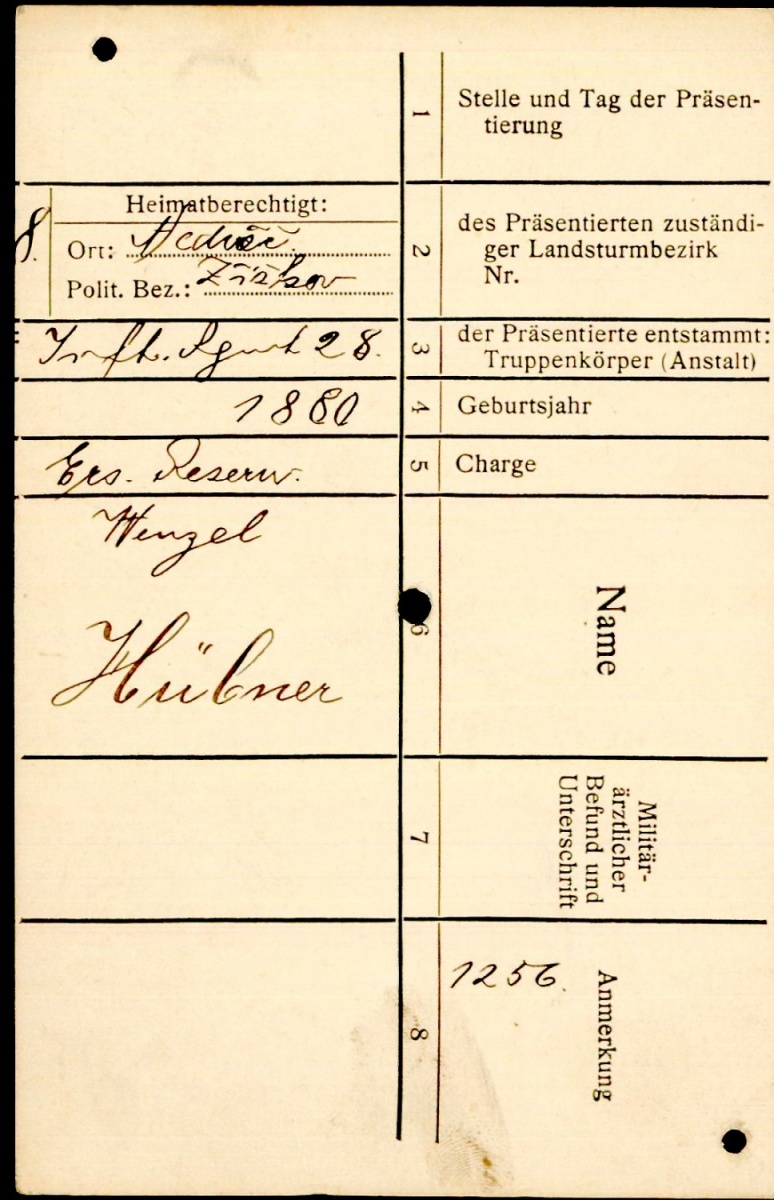 1
Stelle und Tag der Präsen-
tierung
8.
Heimatberechtigt:
Ort:
Polit. Bez.: Žižkov
2
des Präsentierten zuständi-
ger Landsturmbezirk
Nr.
Inft. Rgmt 28.
3
der Präsentierte entstammt:
Truppenkörper (Anstalt)
1880
4
Geburtsjahr
Ers. Reserv.
5
Charge
Wenzel
Hübner
6
Name
7
Militär-
ärztlicher
Befund und
Unterschrift
8
1256.
Anmerkung